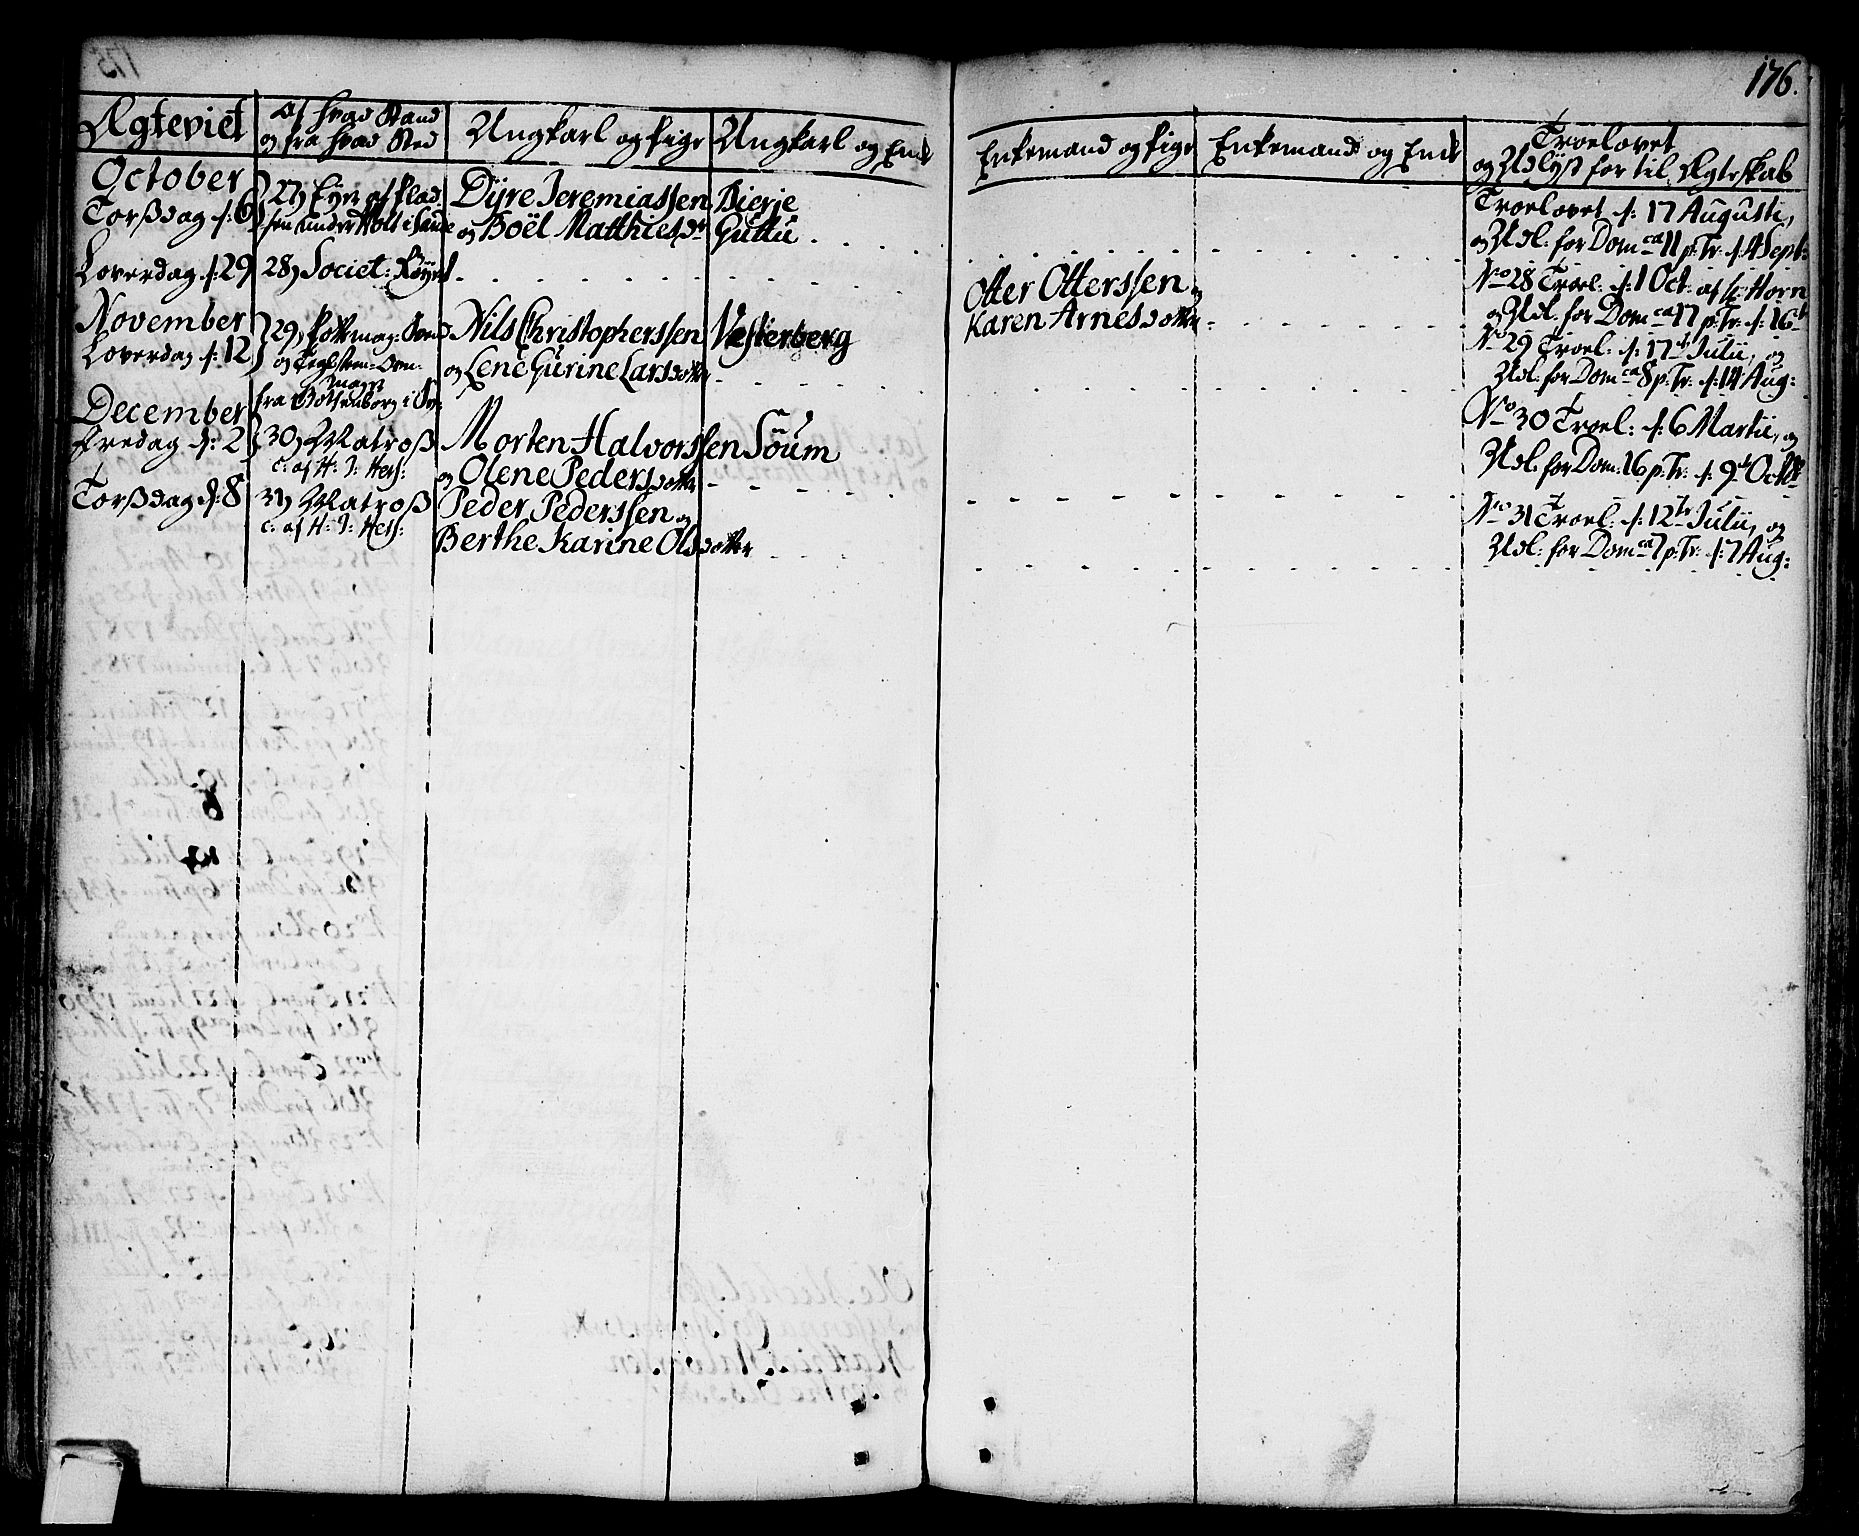 176.
Ægteviet
Af hvad Stand
og fra hvad Sted
Ungkarl og Pige
Ungkarl og Enk
Enkemand og Pige
Enkemand og Enk
Troelovet
og Udlyst for til Ægteskab
October
Torßdag d: 6
27,
under Holt i Sande
Dÿre Jeremiassen Bierje
og Boël Matthiesd: Guttu
Troelovet d: 17 Augusti,
og Udl: for Dom ca 11 p: Tr: d: 4 Sept:
Loverdag d: 29
28, Societ:
Otter Otterssen og
Karen Arnesdotter
No 28 Troel: d: 1 Oct: af Hr Horn
og Udl: for Dom ca 17 p: Tr: d: 16
November
Loverdag d: 12
29,
og
fra i
Nils Christopherssen Vesterberg
og Lene Gurine Larsdotter
No 29 Troel: d: 17 Julii, og
Udl: for Dom ca 8 p: Tr: d: 14 Aug:
December
Fredag d: 2
30, Matroß
c: af H: J: Hess:
Morten Halvorssen Söum
og Olene Pedersdotter
No 30 Troel: d: 6 Martii, og
Udl. for Dom: 16 p: Tr: d: 9 Octbr
Torßdag d: 8
31, Matroß
c: af H: J: Hess:
Peder Pederssen og
Berthe Karine Olsdotter
No 31 Troel: d: 12 Julii, og
Udl: for Dom ca 7 p: Tr: d: 7 Aug: